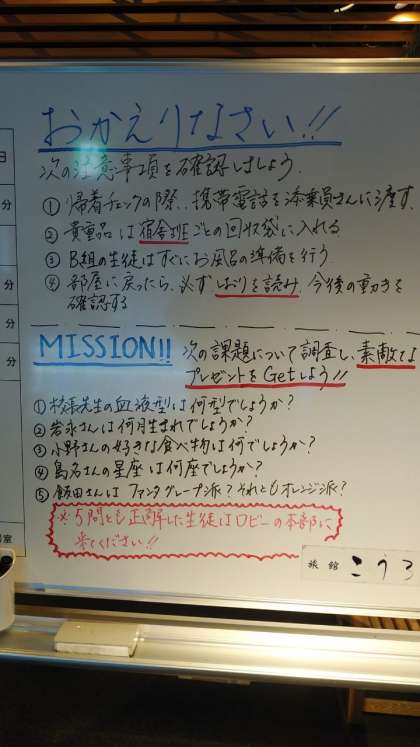 おかえりなさい!!
次の注意事項を確認しましょう.
① 帰着チェックの際、携帯電話を添乗員さんに渡す.
② 貴重品は宿舎班ごとの回収袋に入れる
③ B組の生徒はすぐにお風呂の準備を行う
④ 部屋に戻ったら、必ずしおりを読み、今後の動きを
確認する
MISSION!! 次の課題について調査し、素敵な
プレゼントをGetしよう!!
① 校長先生の血液型は何型でしょうか?
② 若永さんは何月生まれでしょうか?
③ 小野さんの好きな食べ物は何でしょうか?
④ 島名さんの星座は何座でしょうか?
⑤ 飯田さんはファンタグレープ派?それともオレンジ派?
※5問とも正解した生徒はロビーの本部に
来てください!!
旅館 こうろ
日
分
分
分
分
室